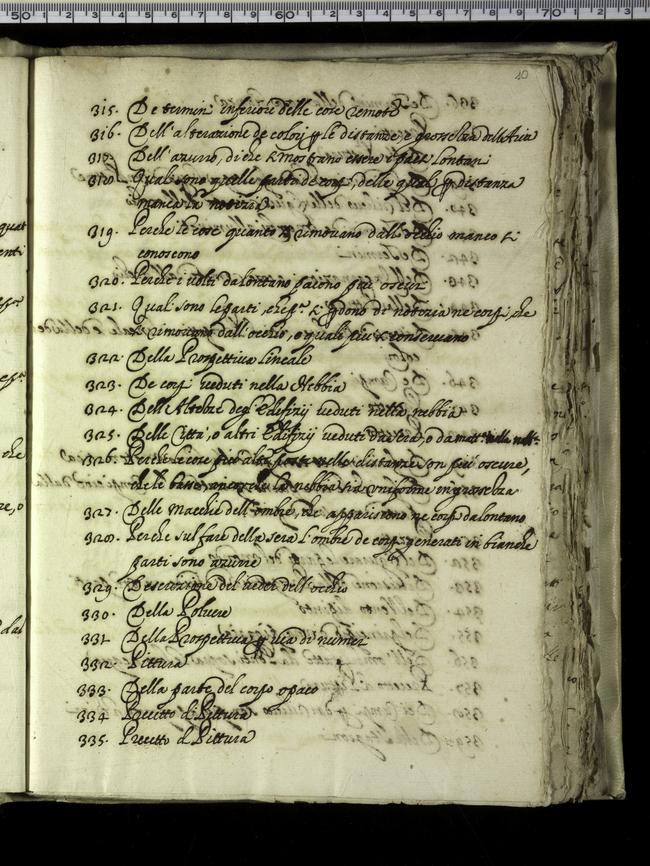 10
315. De termini inferiori delle cose remote
316. Dell'alterazione de colori p le distanze, e grossezza dell'Aria
317. Dell'azurro, di che si mostrano essere i paesi lontani
318. Quali sono quelle parti de corpi, delle quali p distanza
manca la notizia
319. Perche le cose quanto più si rimovano dall'occhio manco si
conoscono
320. Perche i volti da lontano paiono più oscuri
321. Quali sono le parti, che pª si pdono di notizia ne corpi, che
si rimovono dall'occhio, e quali più si conservano
322. Della Prospettiva lineale
323. De corpi veduti nella Nebbia
324. Dell'Altezze degl'Edifizij veduti nella nebbia
325. Delle Città, o altri Edifizij veduti di sera, o da matt: nella neb:
326. Perche le cose più alte poste nelle distanze son più oscure,
che le basse, ancorche la nebbia sia uniforme in grossezza
327. Delle macchie dell'ombre, che appariscono ne corpi da lontano
328. Perche sul fare della sera l'ombre de corpi generati in bianche
parti sono azurre
329. Descrizione del veder dell'occhio
330. Della Polvere
331. Della Prospettiva p via di numeri
332. Pittura
333. Della parte del corpo opaco
334. Precetto di Pittura
335. Precetto di Pittura